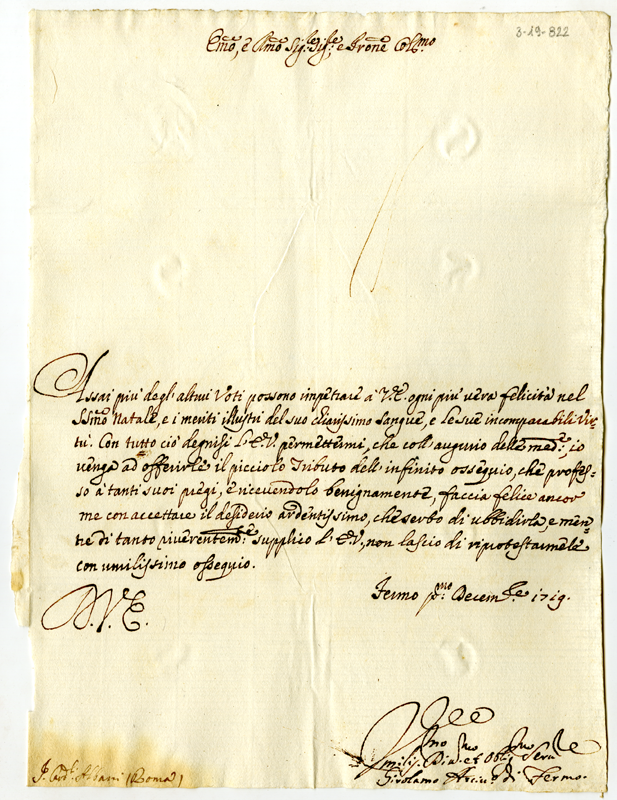 3-19-822
Emo, e Rmo Sig.re Sig.re e Prone Colmo
Assai più degl'altrui Voti possono impetrare à V.E. ogni più vera felicità nel
SSmo Natale, e i meriti illustri del suo chiarissimo sangue, e le sue incomparabili Vir-
tù. Con tutto ciò degnisi L'E.V. permettermi, che coll'augurio delle med.e io
venga ad offerirle il picciolo Tributo dell'infinito ossequio, che profes-
so à tanti suoi pregi, e ricevendolo benignamente, faccia felice ancor
me con accettare il desiderio ardentissimo, che serbo di ubbidirla, e men-
tre di tanto riverentem.e supplico L'E.V., non lascio di riprotestarmele
con umilissimo ossequio.
Fermo pmo: Decembre 1719.
D.V.E.
Vmilis.mo Div.mo et Obl.mo Seru.re
Girolamo Arciv.o di Fermo.
S. Card.l Albani (Roma)